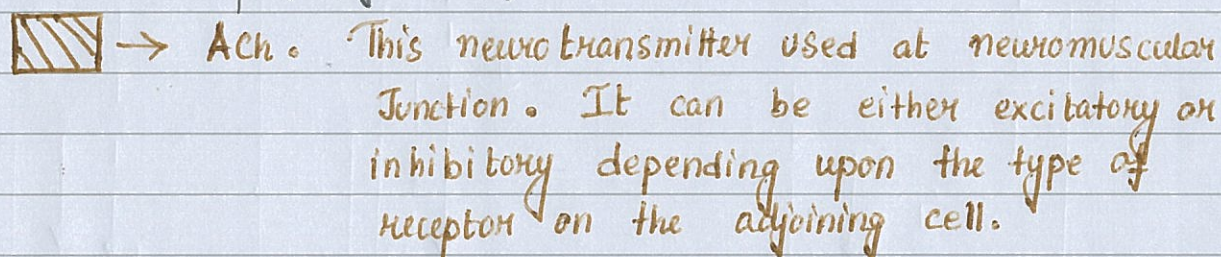 → Ach. This neurotransmitter used at neuromuscular
Junction. It can be either excitatory or
inhibitory depending upon the type of
receptor on the adjoining cell.